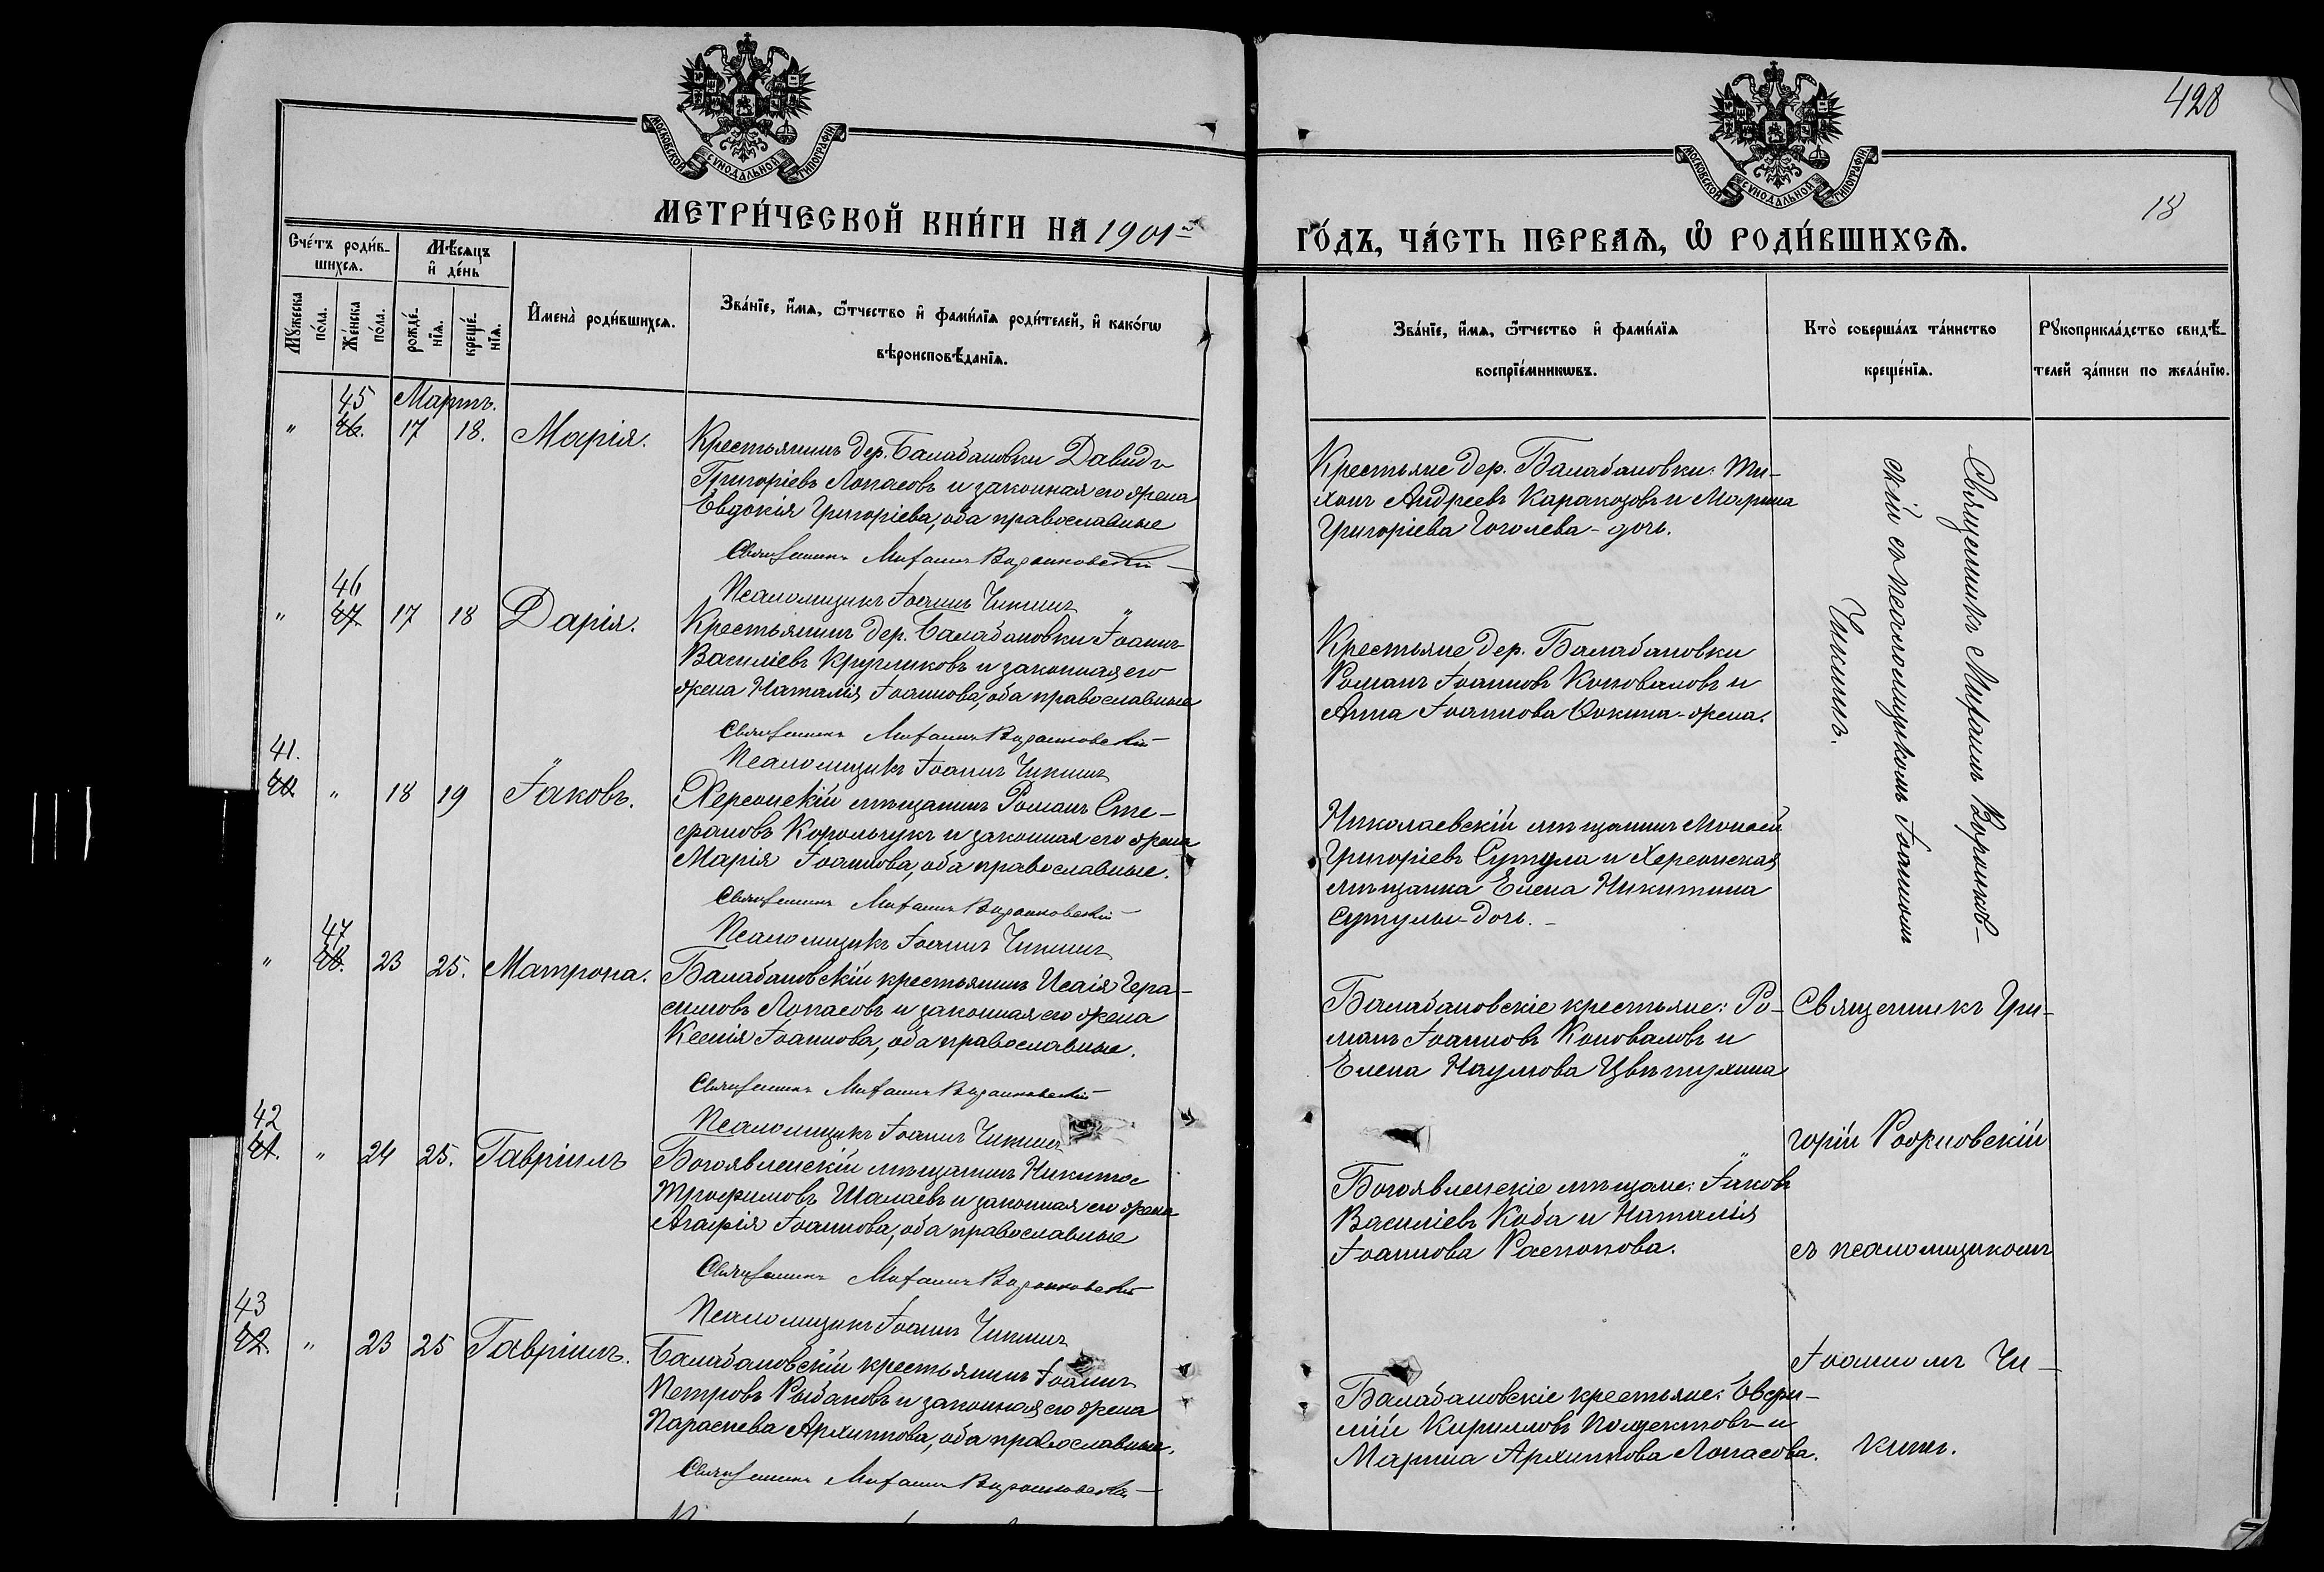 428
18
МОСКОВСКОЙ СѴНОДАЛЬНОЙ ТИПОГРАФІИ
МОСКОВСКОЙ СѴНОДАЛЬНОЙ ТИПОГРАФІИ
МЕТРИ́ЧЕСКОЙ КНИ́ГИ НА 1901 й
ГО́ДЪ, ЧА́СТЬ ПЕРВАѦ, Ѽ РОДИ́ВШИХСѦ.
Сче́тъ роди́в-
шихсѧ.
Мѣ́сяцъ
и҆ де́нь
Мꙋжеска по́ла.
Же́нска по́ла.
рожде́-
нїѧ.
креще́-
нїѧ.
И҆мена̀ роди́вшихсѧ.
Зва́нїе, и҆́мѧ, ѻ҆́тчество и҆ фами́лїѧ роди́телей, и҆ како́гѡ
вѣроисповѣ́данїѧ.
Зва́нїе, и҆́мѧ, ѻ҆́тчество и҆ фами́лїѧ
воспрїе́мникѡвъ.
Кто̀ соверша́лъ та́инство
креще́нїѧ.
Рꙋкоприкла́дство свидѣ́-
телей за́писи по жела́нїю.
Мартъ.
45
" 46. 17 18. Марія.
Крестьянинъ дер. Балабановки Давидъ
Григоріевъ Лопасовъ и законная его жена
Евдокія Григоріева, оба православные
Священникъ Михаилъ Воронковскій
Псаломщикъ Іоаннъ Чикинъ
Крестьяне дер. Балабановки: Ти-
хонъ Андреевъ Каракозовъ и Марина
Григоріева Гоголева - дочь.
Священникъ Михаилъ Воронков-
скій съ псаломщикомъ Іоанномъ
Чикинымъ.
46
" 47. 17 18 Дарія.
Крестьянинъ дер. Балабановки Іоаннъ
Василіевъ Кругликовъ и законная его
жена Наталія Іоаннова, оба православные
Священникъ Михаилъ Воронковскій
Псаломщикъ Іоаннъ Чикинъ
Крестьяне дер. Балабановки
Романъ Іоанновъ Коноваловъ и
Анна Іоаннова - жена.
41.
40. " 18 19 Іаковъ.
Херсонскій мѣщанинъ Романъ Сте-
фановъ Корольчукъ и законная его жена
Марія Іоаннова, оба православные.
Священникъ Михаилъ Воронковскій
Псаломщикъ Іоаннъ Чикинъ
Николаевскій мѣщанинъ Моисей
Григоріевъ Сутула и Херсонская
мѣщанка Елена Никитина
Сутулы - дочь. -
47
" 48. 23 25. Матрона.
Балабановскій крестьянинъ Исаія Гера-
симовъ Лопасовъ и законная его жена
Ксенія Іоаннова, оба православные.
Священникъ Михаилъ Воронковскій
Псаломщикъ Іоаннъ Чикинъ
Балабановскіе крестьяне: Ро-
манъ Іоанновъ Коноваловъ и
Елена Наумова Цвѣтухина
Священникъ Гри-
горій Рожновскій
съ псаломщикомъ
Іоанномъ Чи-
кинъ.
42
41. " 24 25. Гавріилъ
Богоявленскій мѣщанинъ Никита
Трофимовъ Шалаевъ и законная его жена
Агафія Іоаннова, оба православные
Священникъ Михаилъ Воронковскій
Псаломщикъ Іоаннъ Чикинъ
Богоявленскіе мѣщане: Іаковъ
Василіевъ Коба и Наталія
Іоаннова Распопова.
43
42. " 23 25 Гавріилъ.
Балабановскій крестьянинъ Іоаннъ
Петровъ Рыбаковъ и законная его жена
Параскева Архиппова, оба православные.
Священникъ Михаилъ Воронковскій
Балабановскіе крестьяне: Евфи-
мій Кирилловъ и
Марина Архиппова Лопасова.